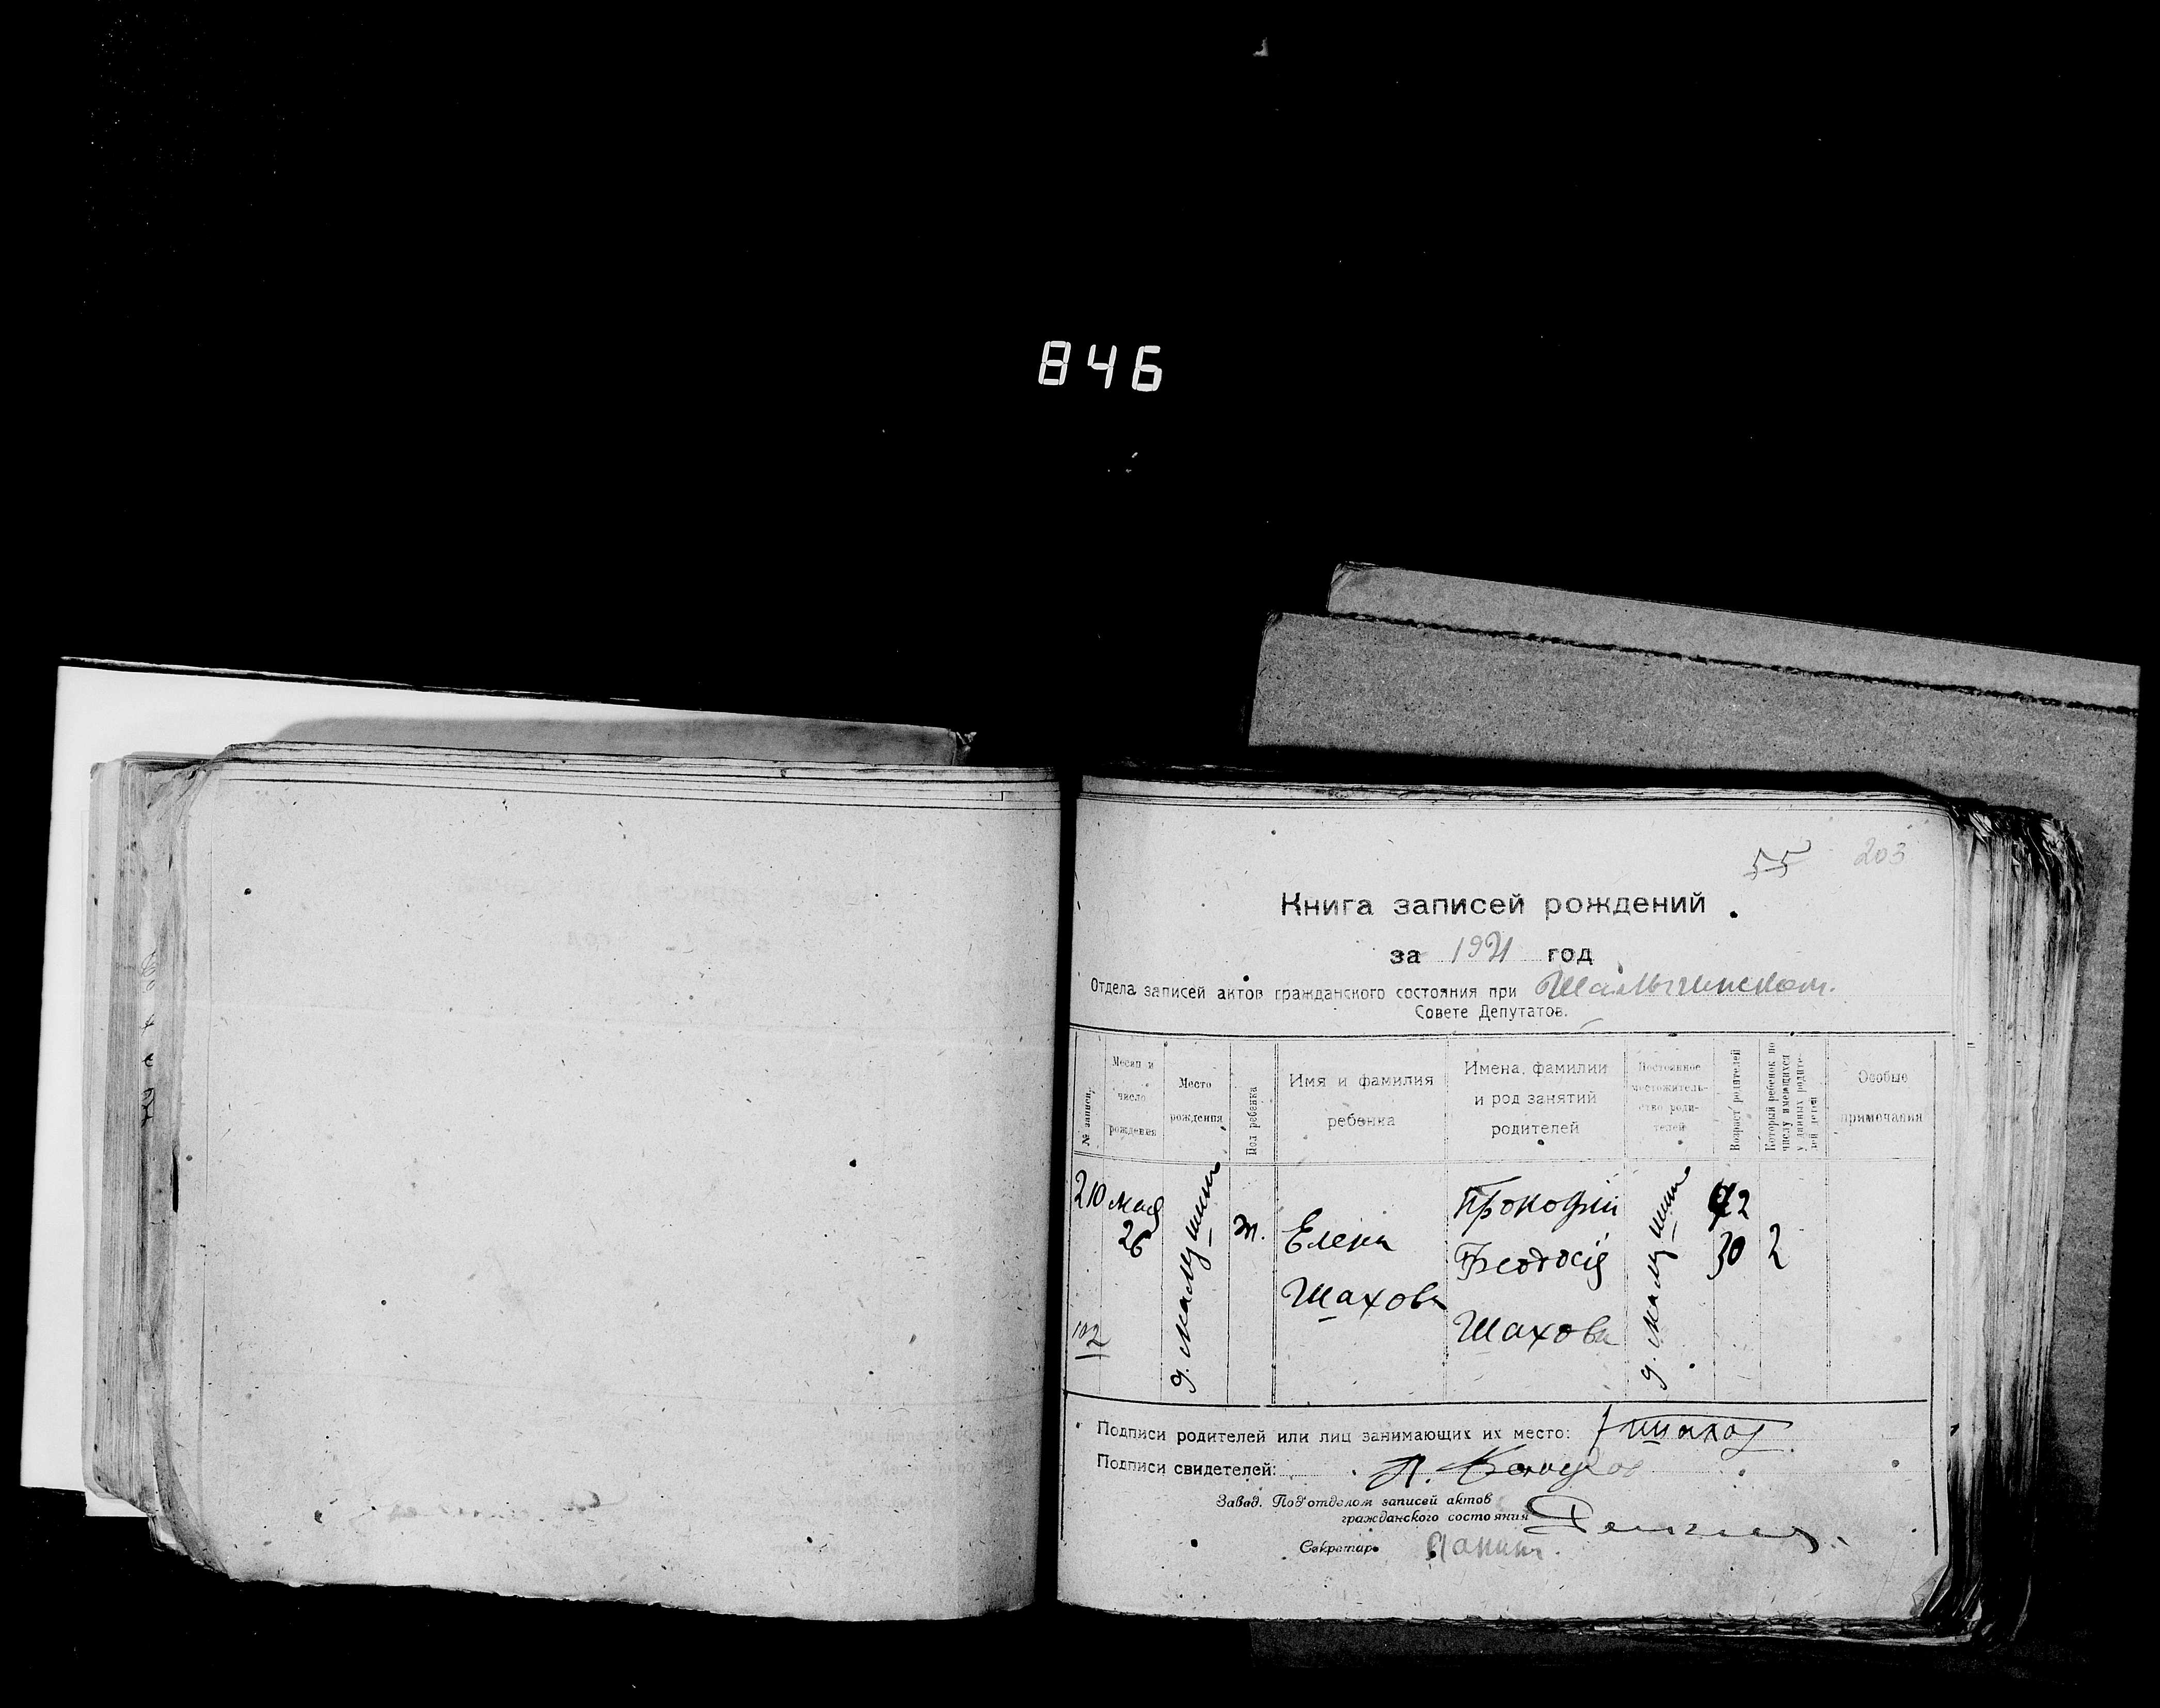 846
55 203
Книга записей рождений
за 1921 год
Отдела записей актов гражданского состояния при
Совете Депутатов.
№ записи.
Месяц и число рождения
Место рождения
Пол ребенка
Имя и фамилия ребенка
Имена, фамилии и род занятий родителей
Постоянное местожительство родителей
Возраст родителей
Который ребенок по числу имеющихся у данных родителей детей
Особые примечания
210 мая 26
102
ж.
Елена
Шахова
Прокофий
Феодосія
Шаховы
42
30 2
Подписи родителей или лиц занимающих их место: Шахов
Подписи свидетелей:
Завед. Подотделом записей актов
гражданского состояния
Секретарь Панин.